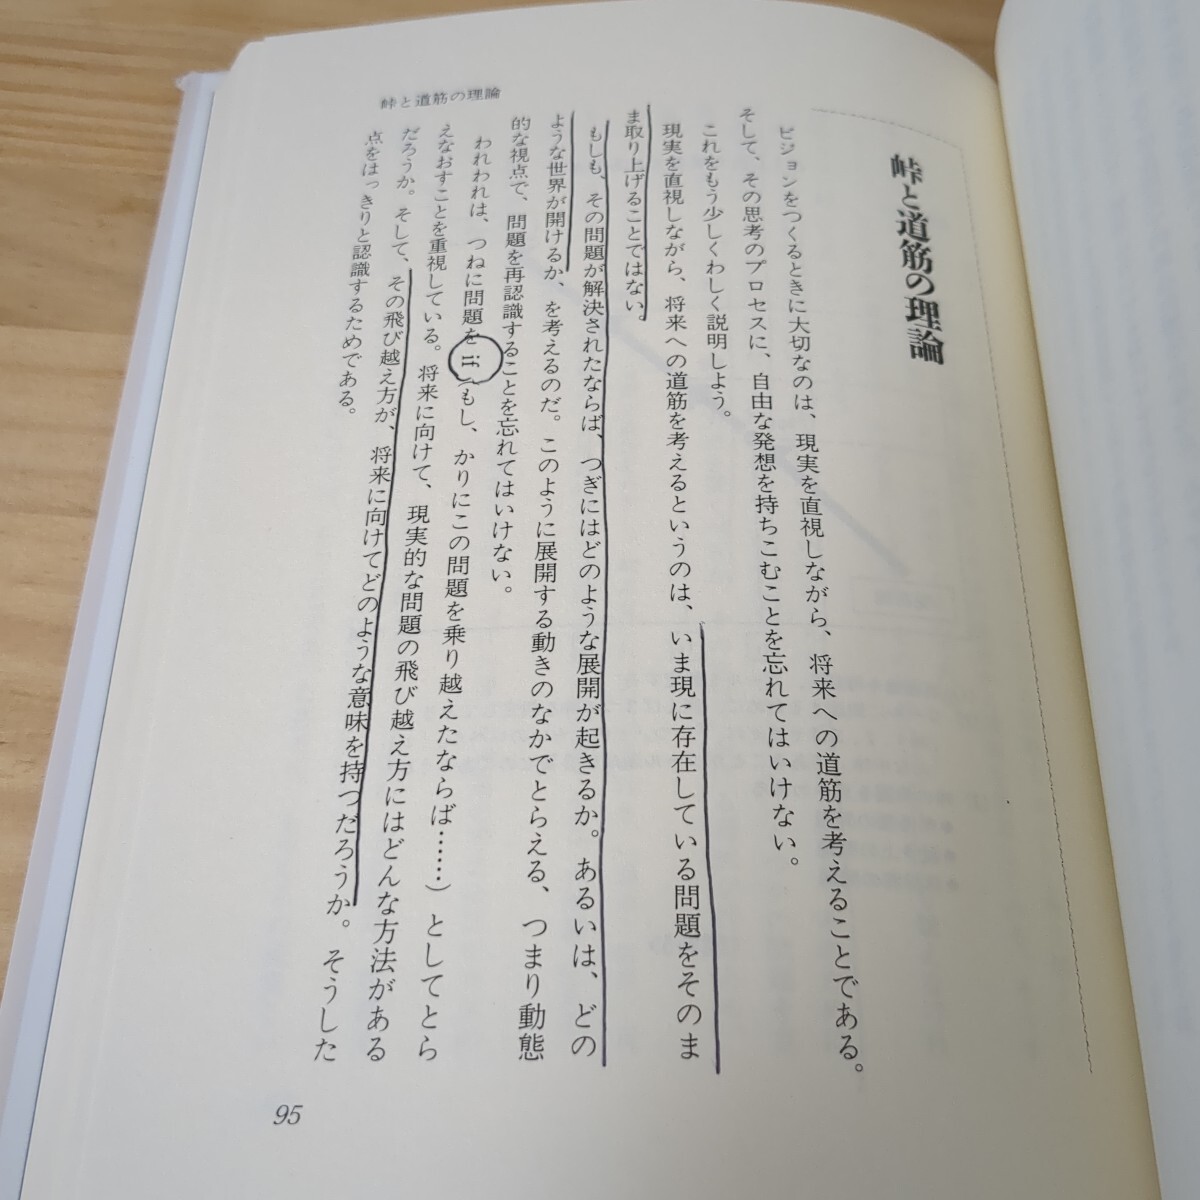 峠と道筋の理論
峠と道筋の理論
ビジョンをつくるときに大切なのは、現実を直視しながら、将来への道筋を考えることである。
そして、その思考のプロセスに、自由な発想を持ちこむことを忘れてはいけない。
これをもう少しくわしく説明しよう。
現実を直視しながら、将来への道筋を考えるというのは、いま現に存在している問題をそのま
ま取り上げることではない。
もしも、その問題が解決されたならば、つぎにはどのような展開が起きるか。あるいは、どの
ような世界が開けるか、を考えるのだ。このように展開する動きのなかでとらえる、つまり動態
的な視点で、問題を再認識することを忘れてはいけない。
われわれは、つねに問題を if（もし、かりにこの問題を乗り越えたならば……）としてとら
えなおすことを重視している。将来に向けて、現実的な問題の飛び越え方にはどんな方法がある
だろうか。そして、その飛び越え方が、将来に向けてどのような意味を持つだろうか。そうした
点をはっきりと認識するためである。
95